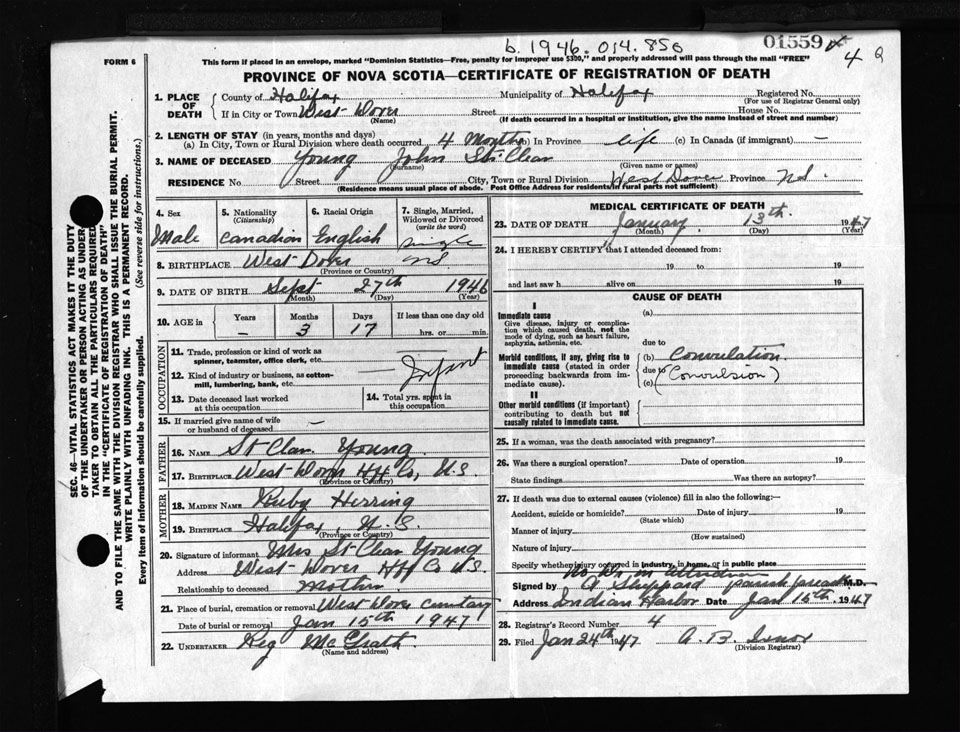 b. 1946. 014. 850
01559
4
FORM 6
This form if placed in an envelope, marked "Dominion Statistics—Free, penalty for improper use $300," and properly addressed will pass through the mail "FREE"
PROVINCE OF NOVA SCOTIA—CERTIFICATE OF REGISTRATION OF DEATH
SEC. 46—VITAL STATISTICS ACT MAKES IT THE DUTY
OF THE UNDERTAKER OR PERSON ACTING AS UNDER-
TAKER TO OBTAIN ALL THE PARTICULARS REQUIRED
IN THE "CERTIFICATE OF REGISTRATION OF DEATH"
AND TO FILE THE SAME WITH THE DIVISION REGISTRAR WHO SHALL ISSUE THE BURIAL PERMIT.
WRITE PLAINLY WITH UNFADING INK. THIS IS A PERMANENT RECORD.
Every item of information should be carefully supplied. (See reverse side for instructions.)
1. PLACE OF DEATH County of Halifax Municipality of Halifax Registered No.
(For use of Registrar General only)
If in City or Town West Dover Street House No.
(Name) (If death occurred in a hospital or institution, give the name instead of street and number)
2. LENGTH OF STAY (in years, months and days)
(a) In City, Town or Rural Division where death occurred 4 Months (b) In Province life (c) In Canada (if immigrant) —
3. NAME OF DECEASED Young John St. Clear
(Surname) (Given name or names)
RESIDENCE No. Street City, Town or Rural Division West Dover Province N.S.
(Residence means usual place of abode. Post Office Address for residents in rural parts not sufficient)
4. Sex 5. Nationality (Citizenship) 6. Racial Origin 7. Single, Married, Widowed or Divorced (write the word)
Male Canadian English single
8. BIRTHPLACE West Dover N.S.
(Province or Country)
9. DATE OF BIRTH Sept 27th 1946
(Month) (Day) (Year)
10. AGE in Years Months Days If less than one day old
— 3 17 hrs. or min.
OCCUPATION
11. Trade, profession or kind of work as spinner, teamster, office clerk, etc. —
12. Kind of industry or business, as cotton-mill, lumbering, bank, etc. — Infant
13. Date deceased last worked at this occupation
14. Total yrs. spent in this occupation
15. If married give name of wife or husband of deceased —
FATHER
16. NAME St Clair Young
17. BIRTHPLACE West Dover Hfx Co, N.S.
(Province or Country)
MOTHER
18. MAIDEN NAME Ruby Herring
19. BIRTHPLACE Halifax, N.S.
(Province or Country)
20. Signature of informant Mrs St Clair Young
Address West Dover Hfx Co N.S.
Relationship to deceased Mother
21. Place of burial, cremation or removal West Dover cemetary
Date of burial or removal Jan 15th 1947
22. UNDERTAKER Reg McGrath
(Name and address)
MEDICAL CERTIFICATE OF DEATH
23. DATE OF DEATH January 13th. 1947
(Month) (Day) (Year)
24. I HEREBY CERTIFY that I attended deceased from:
19 to 19
and last saw h alive on 19
CAUSE OF DEATH
I
Immediate cause
Give disease, injury or complication which caused death, not the mode of dying, such as heart failure, asphyxia, asthenia, etc.
(a)
due to
Morbid conditions, if any, giving rise to immediate cause (stated in order proceeding backwards from immediate cause).
(b) Convulation.
due to
(c) (Convulsion)
II
Other morbid conditions (if important) contributing to death but not causally related to immediate cause.
25. If a woman, was the death associated with pregnancy?
26. Was there a surgical operation? Date of operation 19
State findings Was there an autopsy?
27. If death was due to external causes (violence) fill in also the following:—
Accident, suicide or homicide? Date of injury 19
(State which)
Manner of injury
(How sustained)
Nature of injury
Specify whether injury occurred in industry, in home, or in public place
No Dr. in attendance
Signed by A Sheppard parish priest M.D.
Address Indian Harbor Date Jan 15th. 1947
28. Registrar's Record Number 4
29. Filed Jan 24th 1947 A. B.
(Division Registrar)